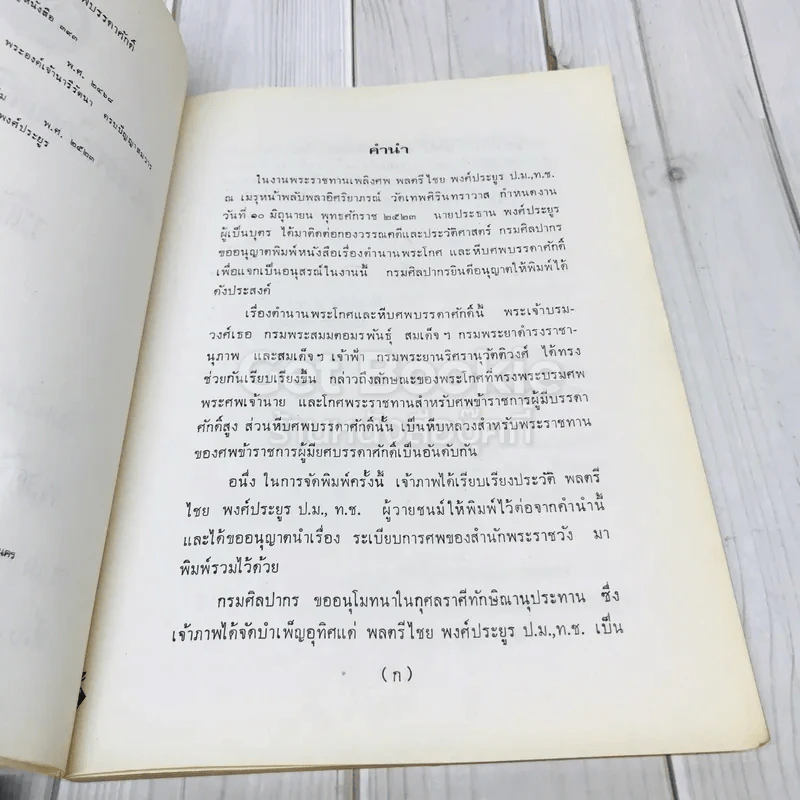 พบรรดาศักดิ์
หนังสือ ๓๙๓
พ.ศ. ๒๔๖๘
พระองค์เจ้านารีรัตนา ครบปัญญาสมวาร
พ.ศ. ๒๕๒๓
พงศ์ประยูร
นคร
คำนำ
ในงานพระราชทานเพลิงศพ พลตรีไชย พงศ์ประยูร ป.ม.,ท.ช.
ณ เมรุหน้าพลับพลาอิศริยาภรณ์ วัดเทพศิรินทราวาส กำหนดงาน
วันที่ ๑๐ มิถุนายน พุทธศักราช ๒๕๒๓ นายประธาน พงศ์ประยูร
ผู้เป็นบุตร ได้มาติดต่อกองวรรณคดีและประวัติศาสตร์ กรมศิลปากร
ขออนุญาตพิมพ์หนังสือเรื่องตำนานพระโกศ และหีบศพบรรดาศักดิ์
เพื่อแจกเป็นอนุสรณ์ในงานนี้ กรมศิลปากรยินดีอนุญาตให้พิมพ์ได้
ดังประสงค์
เรื่องตำนานพระโกศและหีบศพบรรดาศักดิ์นี้ พระเจ้าบรม-
วงศ์เธอ กรมพระสมมตอมรพันธุ์ สมเด็จฯ กรมพระยาดำรงราชา-
นุภาพ และสมเด็จฯ เจ้าฟ้า กรมพระยานริศรานุวัดติวงศ์ ได้ทรง
ช่วยกันเรียบเรียงขึ้น กล่าวถึงลักษณะของพระโกศที่ทรงพระบรมศพ
พระศพเจ้านาย และโกศพระราชทานสำหรับศพข้าราชการผู้มีบรรดา
ศักดิ์สูง ส่วนหีบศพบรรดาศักดิ์นั้น เป็นหีบหลวงสำหรับพระราชทาน
ของศพข้าราชการผู้มียศบรรดาศักดิ์เป็นอันดับกัน
อนึ่ง ในการจัดพิมพ์ครั้งนี้ เจ้าภาพได้เรียบเรียงประวัติ พลตรี
ไชย พงศ์ประยูร ป.ม., ท.ช. ผู้วายชนม์ ให้พิมพ์ไว้ต่อจากคำนำนี้
และได้ขออนุญาตนำเรื่อง ระเบียบการศพของสำนักพระราชวัง มา
พิมพ์รวมไว้ด้วย
กรมศิลปากร ขออนุโมทนาในกุศลราศีทักษิณานุประทาน ซึ่ง
เจ้าภาพได้จัดบำเพ็ญอุทิศแด่ พลตรีไชย พงศ์ประยูร ป.ม.,ท.ช. เป็น
(ก)
Get Bookie
ร้านหนังสือบุ๊คกี้